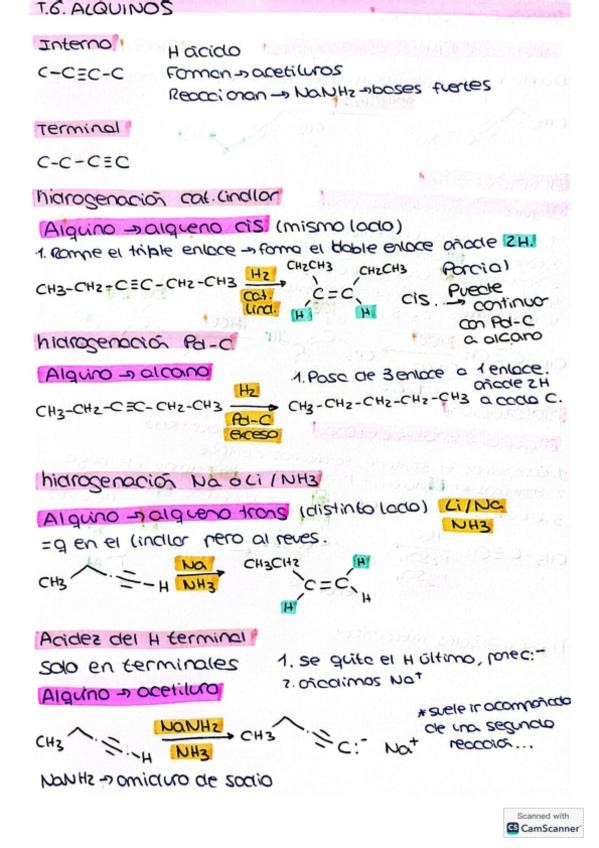 T.6. ALQUINOS
Interno
H ácido
C-C≡C-C
Forman → acetiluros
Reaccionan → NaNH2 → bases fuertes
Terminal
C-C-C≡C
hidrogenación cat. Lindlar
Alquino → alqueno cis (mismo lado)
1. Rompe el triple enlace → forma el doble enlace añade 2H.
CH3-CH2-C≡C-CH2-CH3
H2
cat. Lind.
CH2CH3
CH2CH3
C=C
H
H
cis.
Parcial
Puede
→ continuar
con Pd-C
a alcano
hidrogenación Pd-C
Alquino → alcano
1. Pasa de 3 enlace a 1 enlace.
añade 2H
a cada C.
CH3-CH2-C≡C-CH2-CH3
H2
Pd-C
exceso
CH3-CH2-CH2-CH2-CH3
hidrogenación Na ó Li / NH3
Alquino → alqueno trans (distinto lado)
Li/Na
NH3
=q en el Lindlar pero al reves.
CH3
H
Na
NH3
CH3CH2
H
C=C
H
H
Acidez del H terminal
Solo en terminales
1. Se quita el H último, pone C:-
Alquino → acetiluro
2. añadimos Na+
CH3
H
NaNH2
NH3
CH3
C:-
Na+
*suele ir acompañado
de una segunda
reacción...
NaNH2 → amiduro de sodio
Scanned with
CS CamScanner